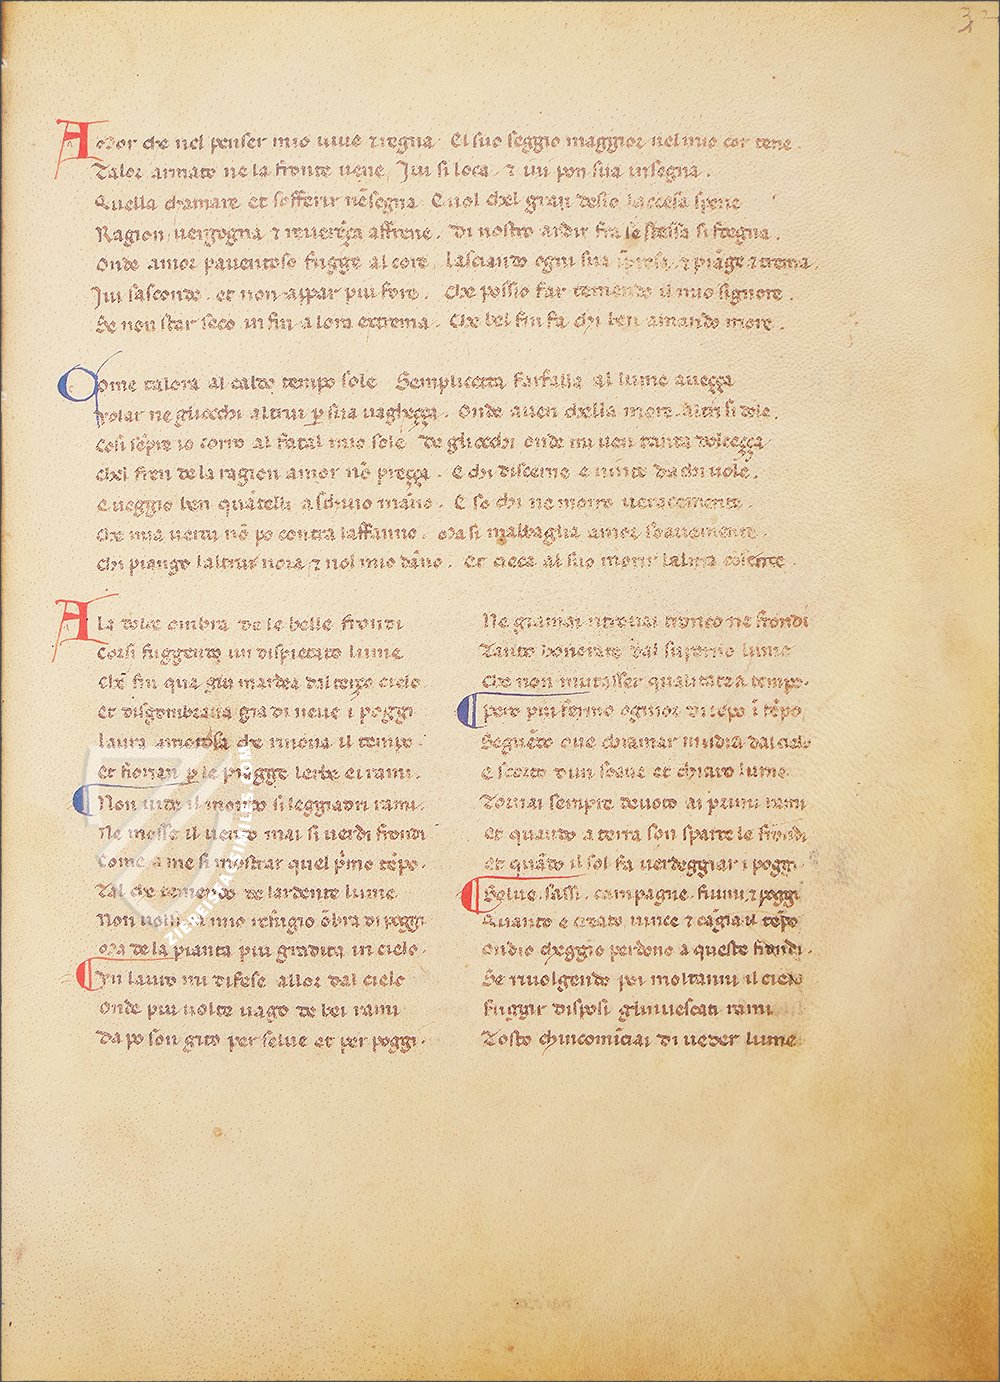 32
AMor che nel penser mio viue et regna. El suo seggio maggior nel mio cor tene.
Talor armato ne la fronte uene, Iui si loca. et iui pon sua insegna.
Quella chamare et sofferir nēsegna. E uol chel gran desio laccesa spene
Ragion, uergogna et reuerēça affrene. Di nostro ardir fra se stessa si sdegna.
Onde amor pauentoso fugge al core, lasciando ogni sua īpresa, et piāge et trema,
Iui sasconde. et non appar piu fore. Che possio far temendo il mio signore.
Se non star seco in fin a lora extrema. Che bel fin fa chi ben amando more.
Come talora al caldo tempo sole Semplicetta farfalla al lume aueçça
Volar ne gliocchi altrui per sua uagheçça. Onde auen chella more. altri si dole.
Cosi sēpre io corro al fatal mio sole De gliocchi onde mi uen tanta dolceçça
Chel fren de la ragion amor nō preçça. E chi discerne e uinto da chi uole.
E ueggio ben quātelli a schiuo māno. E so chi ne morro ueracemente.
Che mia uertu nō po contra laffanno. Ma si mabbaglia amor soauemente.
Chi piango laltrui noia, et nol mio dāno. Et cieca al suo morir lalma consente.
A la dolce ombra de le belle frondi
Corsi fuggendo un dispietato lume
Chē fin qua giu mardea dal terço cielo
Et disgombraua gia di neue i poggi
Laura amorosa che rinoua il tempo.
Et fiorian per le piagge lerbe ei rami.
Non uide il mondo si leggiadri rami.
Ne mosse il uento mai si uerdi frondi
Come a me si mostrar quel prīmo tēpo.
Tal che temendo de lardente lume
Non uolsi al mio refugio ōbra di poggi
Ma de la pianta piu gradita in cielo.
Un lauro mi difese allor dal cielo
Onde piu uolte uago de bei rami
Da po son gito per selue et per poggi.
Ne giamai ritrouai tronco ne frondi
Tanto honorate dal supremo lume
Che non mutasser qualitate a tempo.
Pero piu fermo ognior di tēpo ī tēpo
Seguēdo oue chiamar mudia dal cielo
E scorto dun soaue et chiaro lume
Tornai sempre deuoto ai primi rami
Et quando a terra son sparte le frondi
Et quādo il sol fa uerdeggiar i poggi.
Selue, sassi, campagne, fiumi, et poggi
Quanto e creato uince et cāgia il tēpo
Ondio cheggio perdono a queste frondi.
Se riuolgendo poi moltanni il cielo
Fuggir disposi gliinuescati rami
Tosto chincomīciai di ueder lume